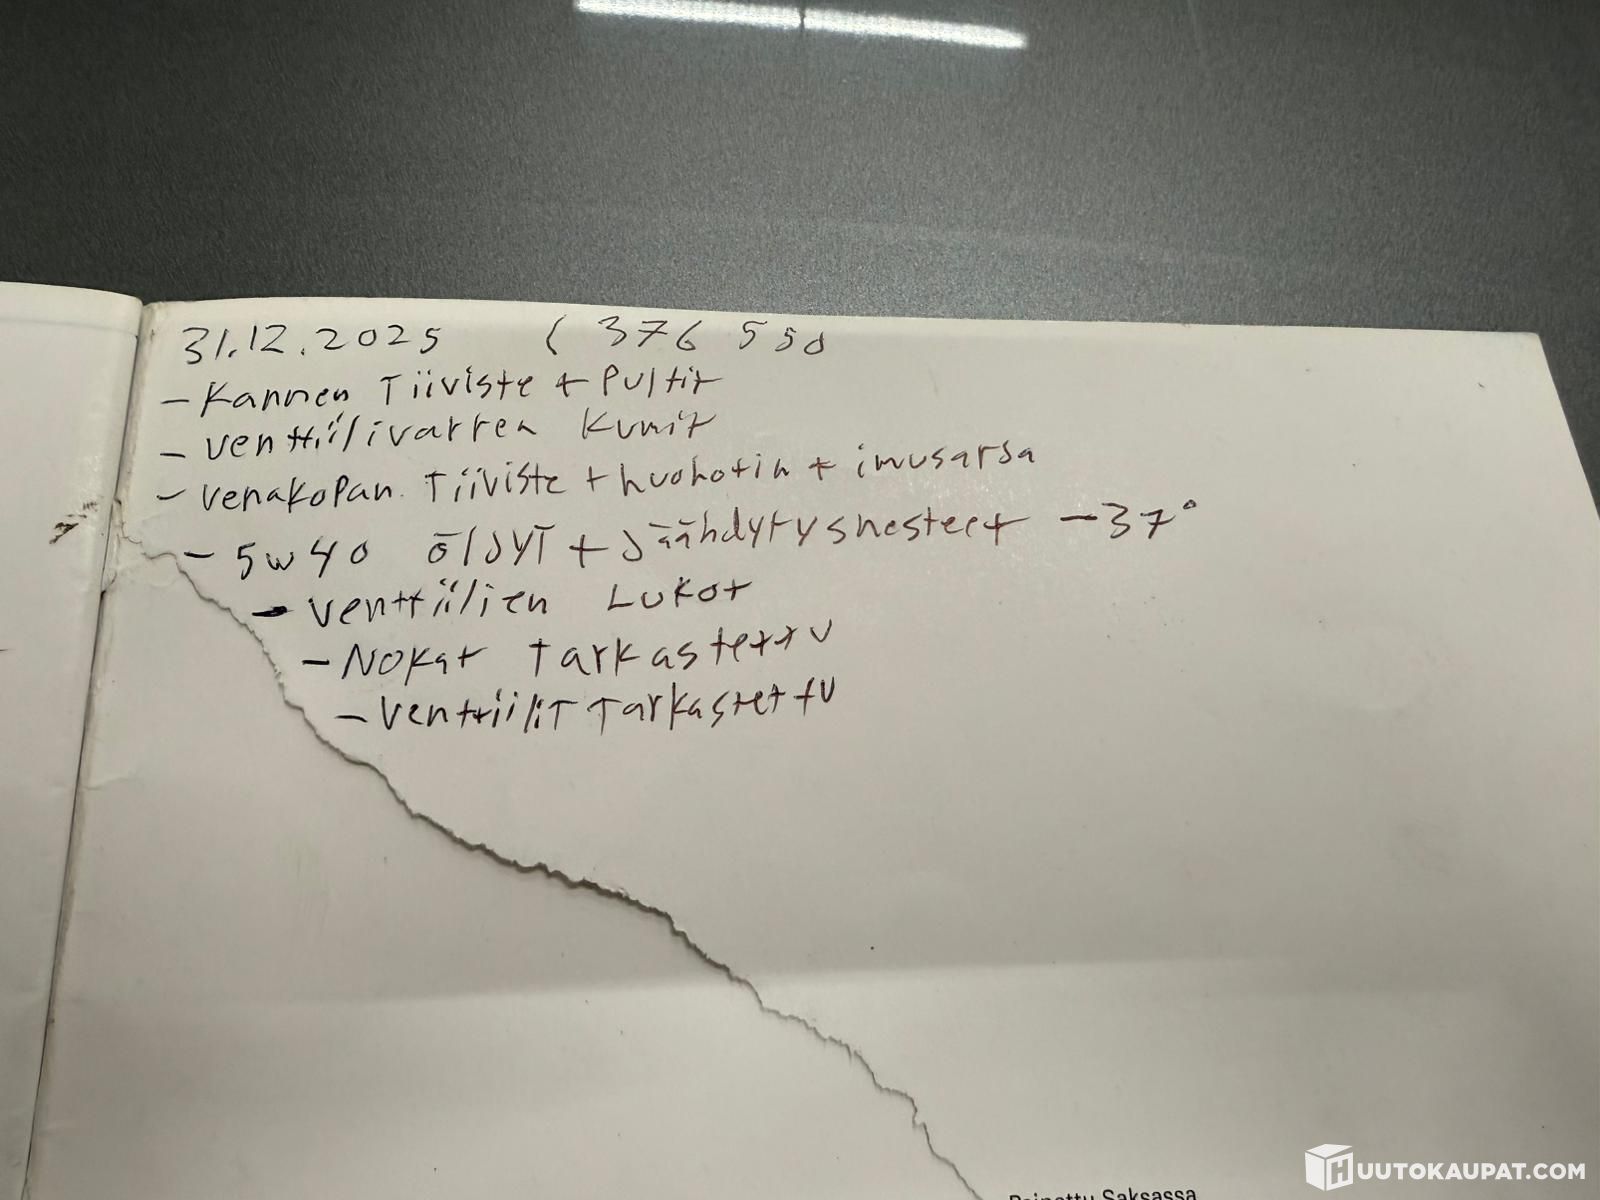 31.12.2025 ( 376 550
- Kannen Tiiviste + Pultit
- Venttiilivarren Kumit
- Venakopan Tiiviste + huohotin + imusarsa
- 5w40 öljyt + Jäähdytysnesteet -37°
- Venttiilien Lukot
- Nokat Tarkastettu
- Venttiilit Tarkastettu
Painettu Saksassa
HUUTOKAUPAT.COM